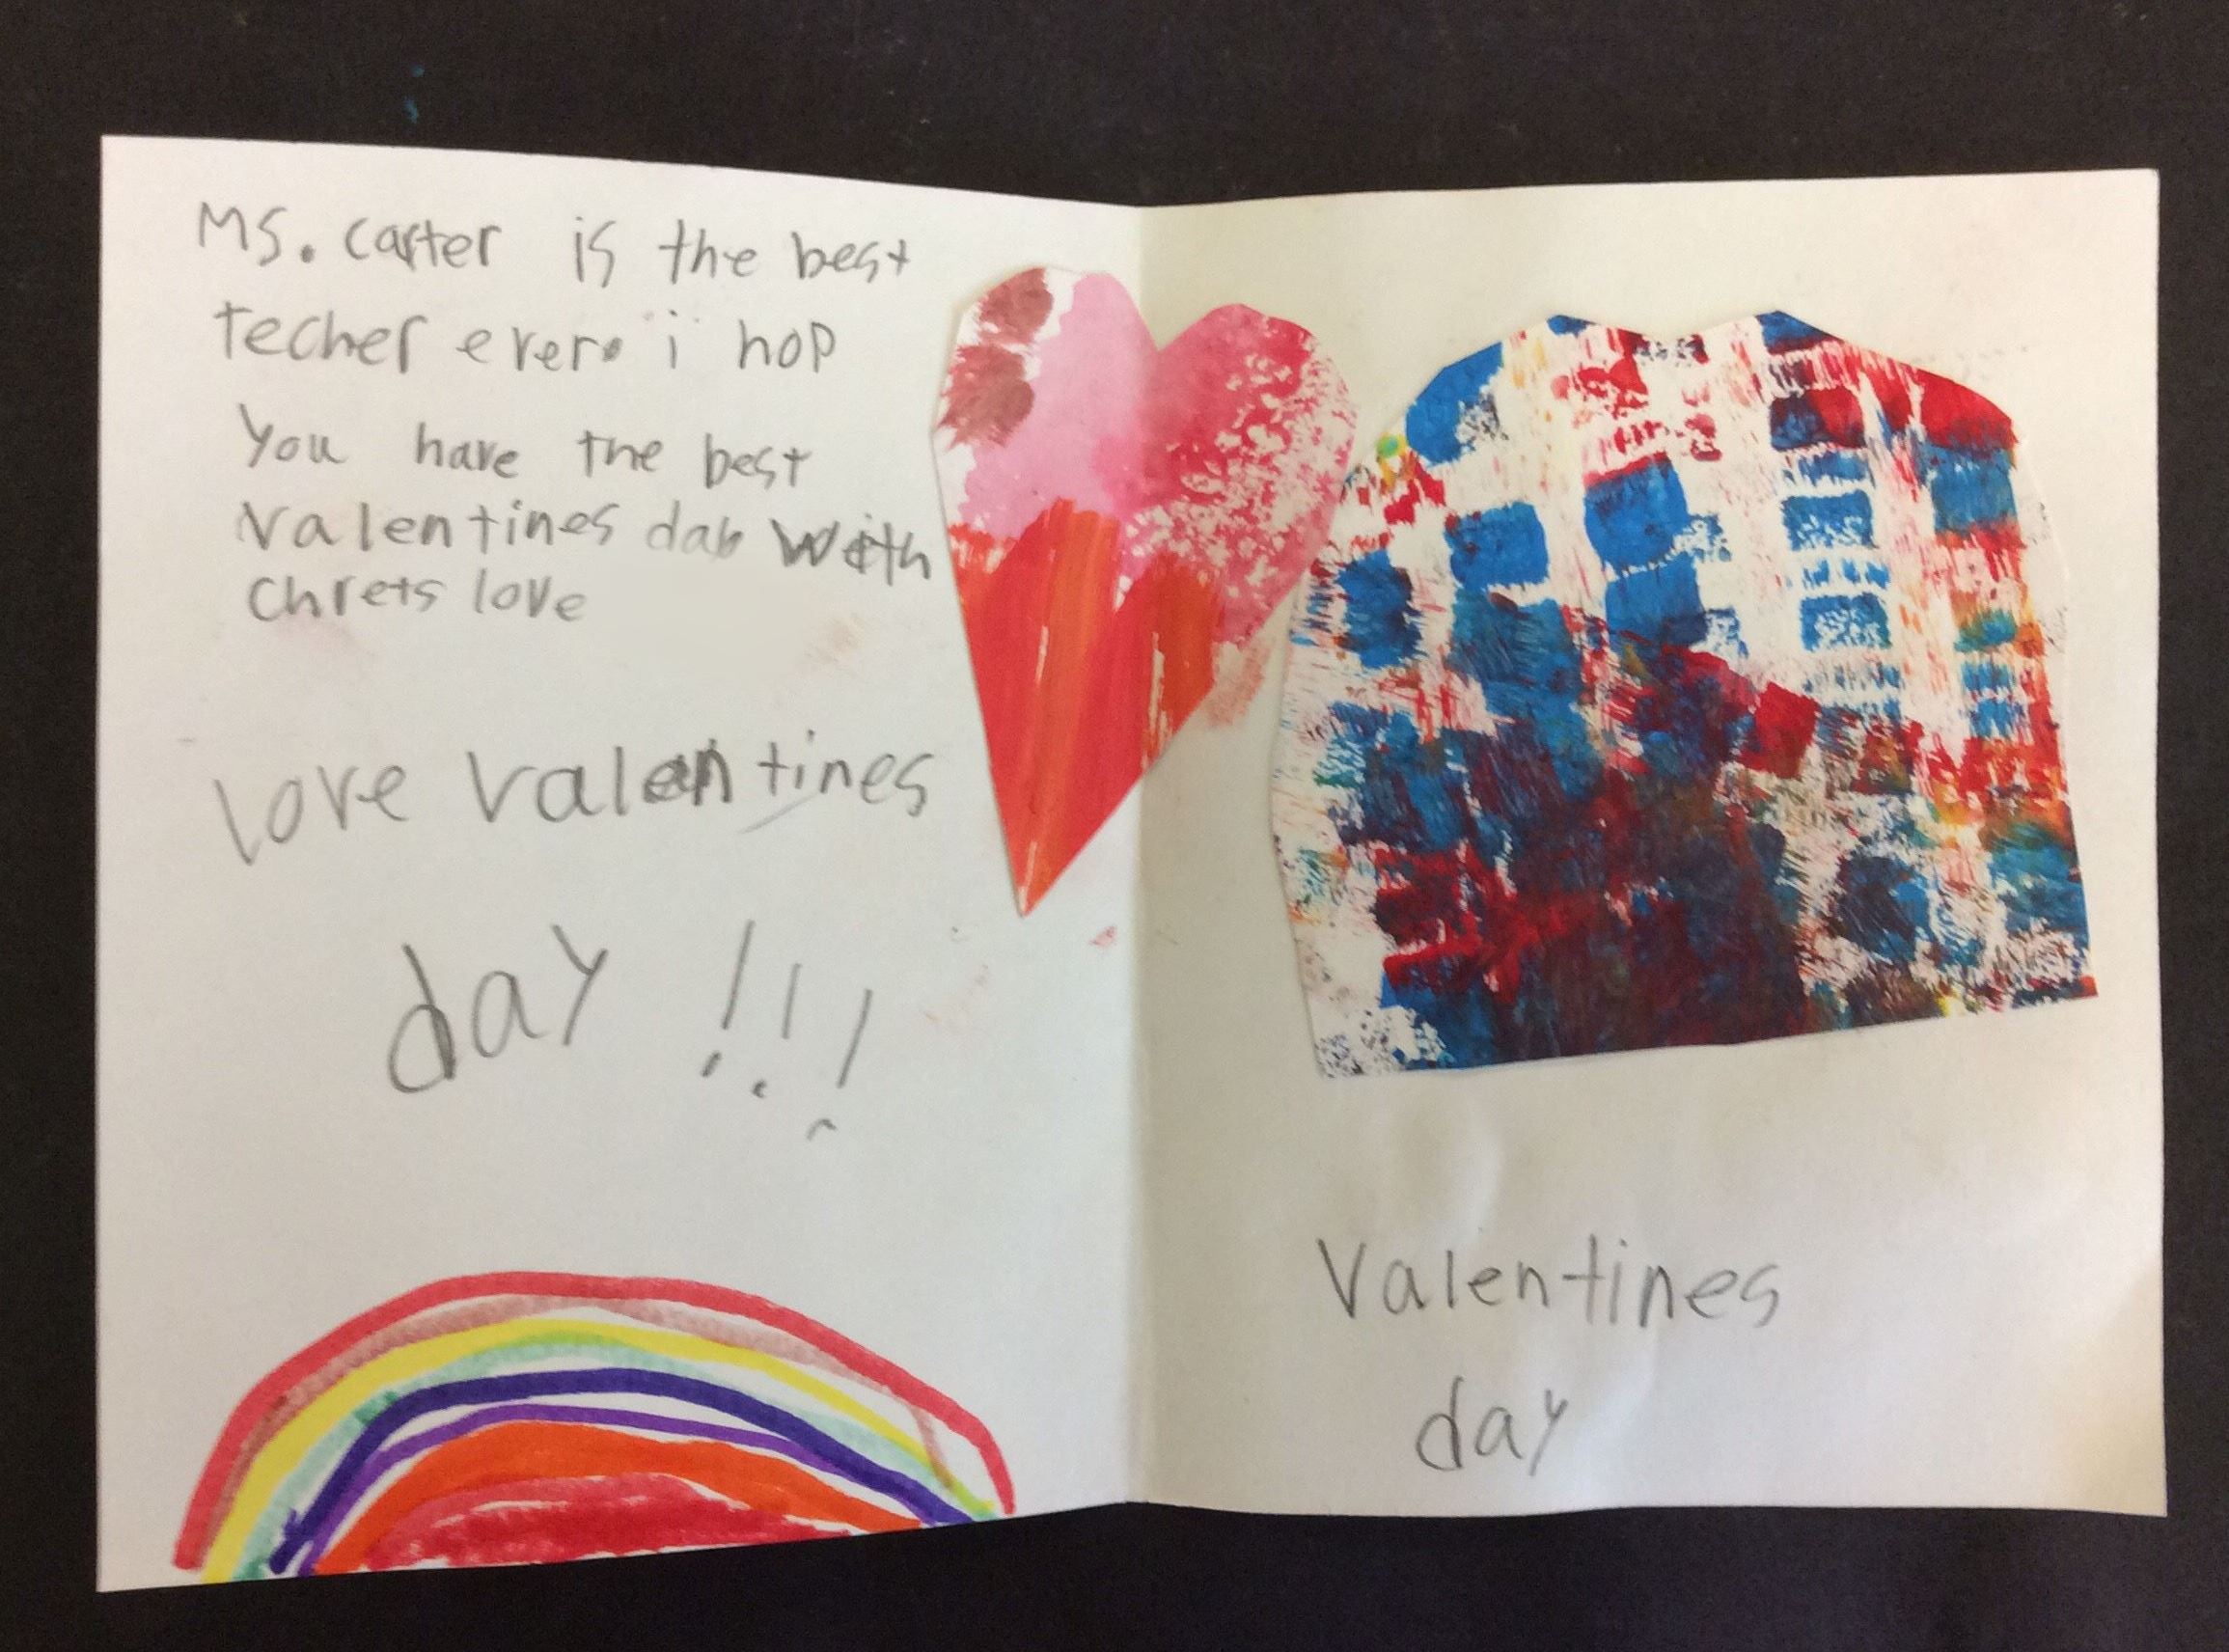 Ms. Carter is the best
techer ever. i hop
You have the best
Valentines dab with
Chrets love
love valentines
day !!!
Valentines
day